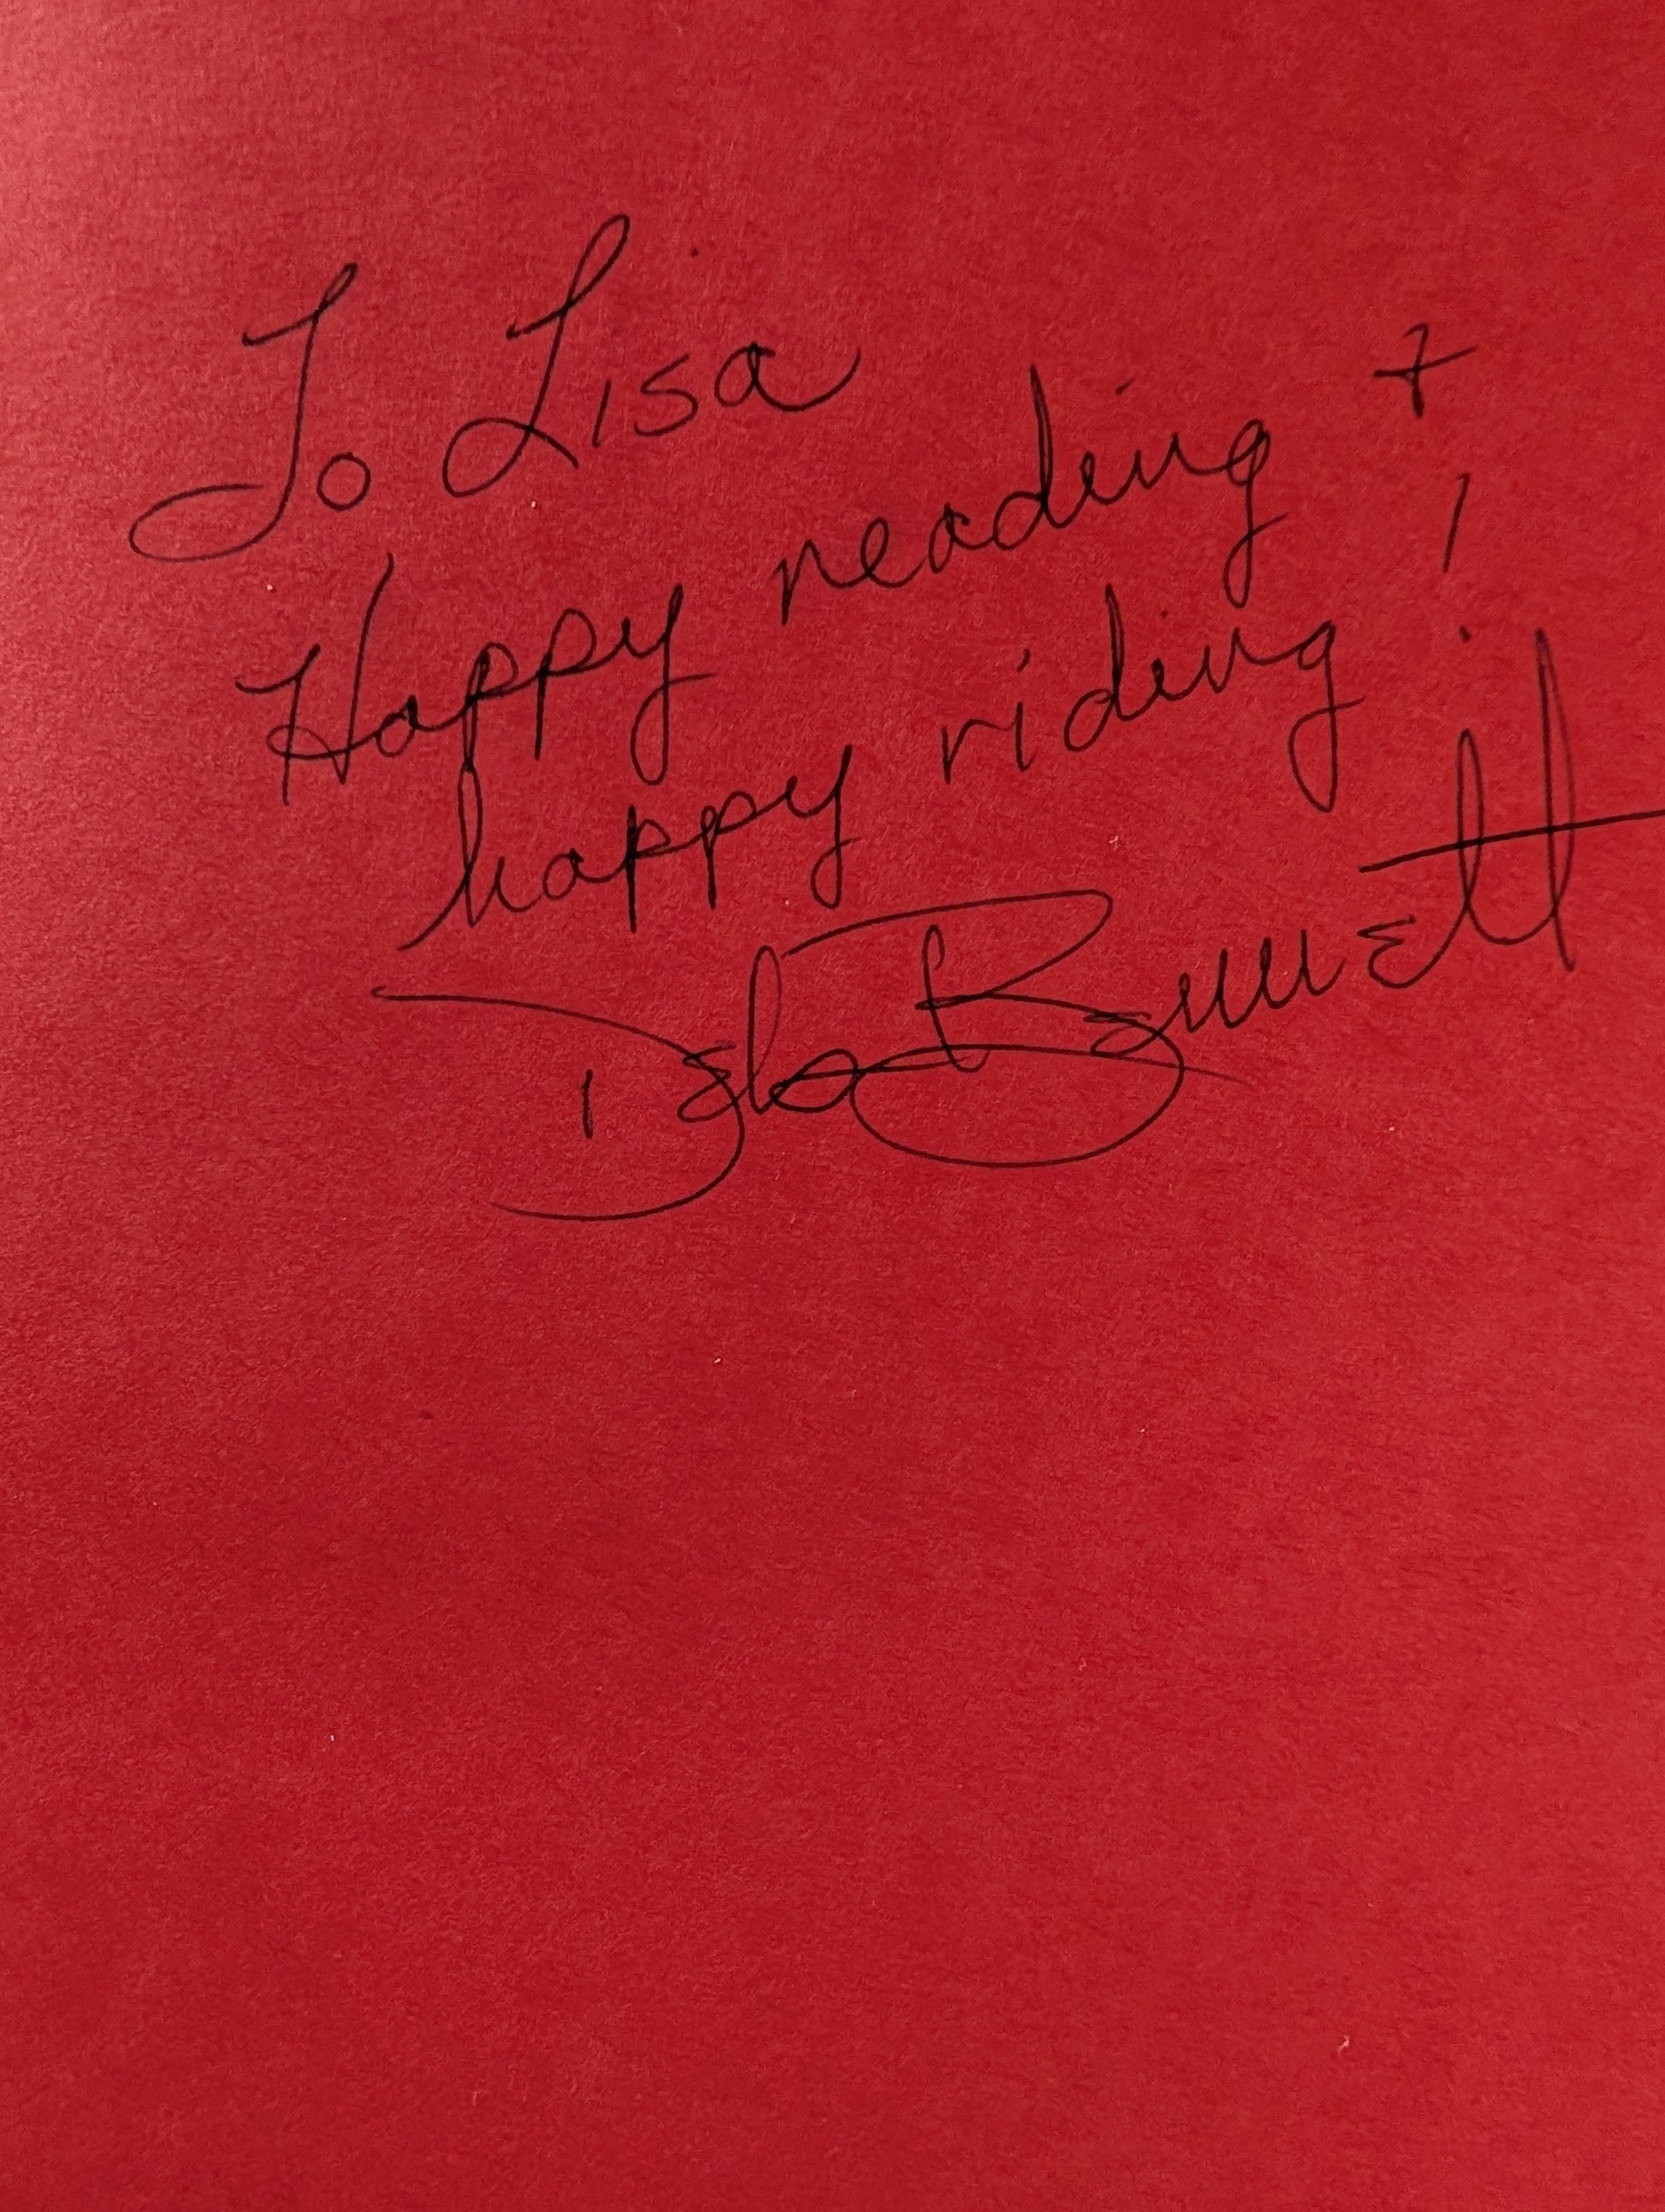 To Lisa
Happy reading +
happy riding!
Deb Bennett